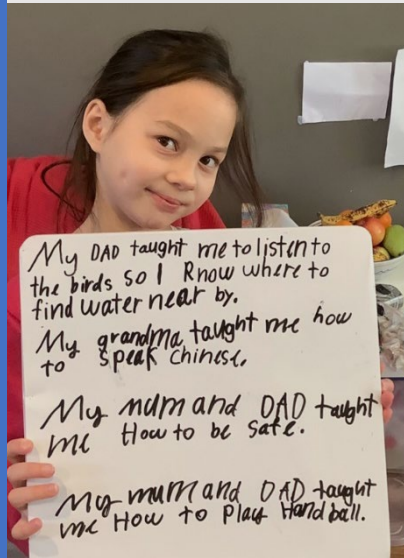 My DAD taught me to listen to
the birds so I Know where to
find water near by.
My grandma taught me how
to speak chinese.
My mum and DAD taught
me How to be safe.
My mum and DAD taught
me How to Play Handball.